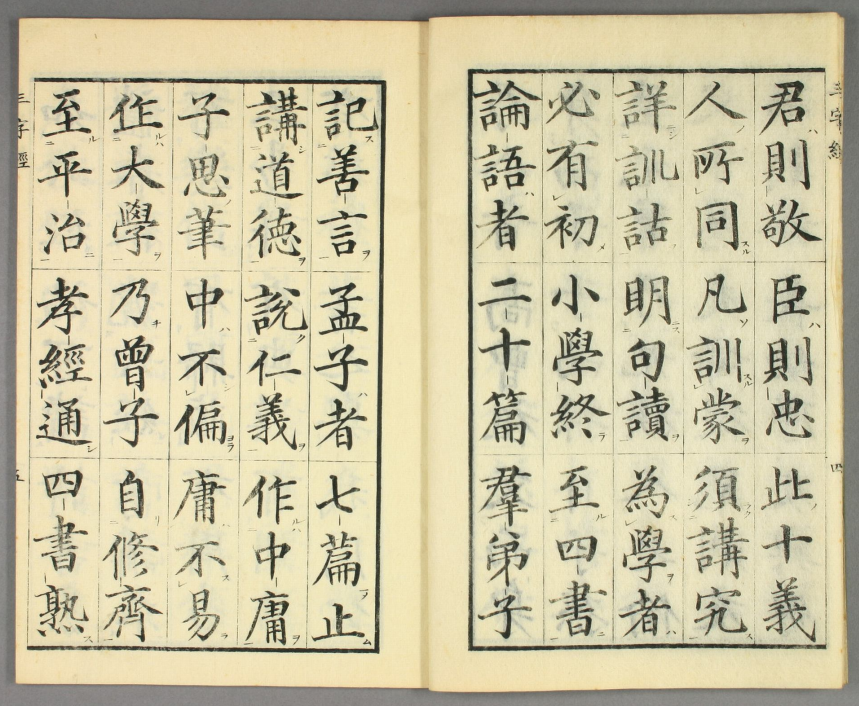 君則敬 臣則忠 此十義
人所同 凡訓蒙 須講究
詳訓詁 明句讀 為學者
必有初 小學終 至四書
論語者 二十篇 羣弟子
四
記善言 孟子者 七篇止
講道德 說仁義 作中庸
子思筆 中不偏 庸不易
作大學 乃曾子 自修齊
至平治 孝經通 四書熟
三字經
五